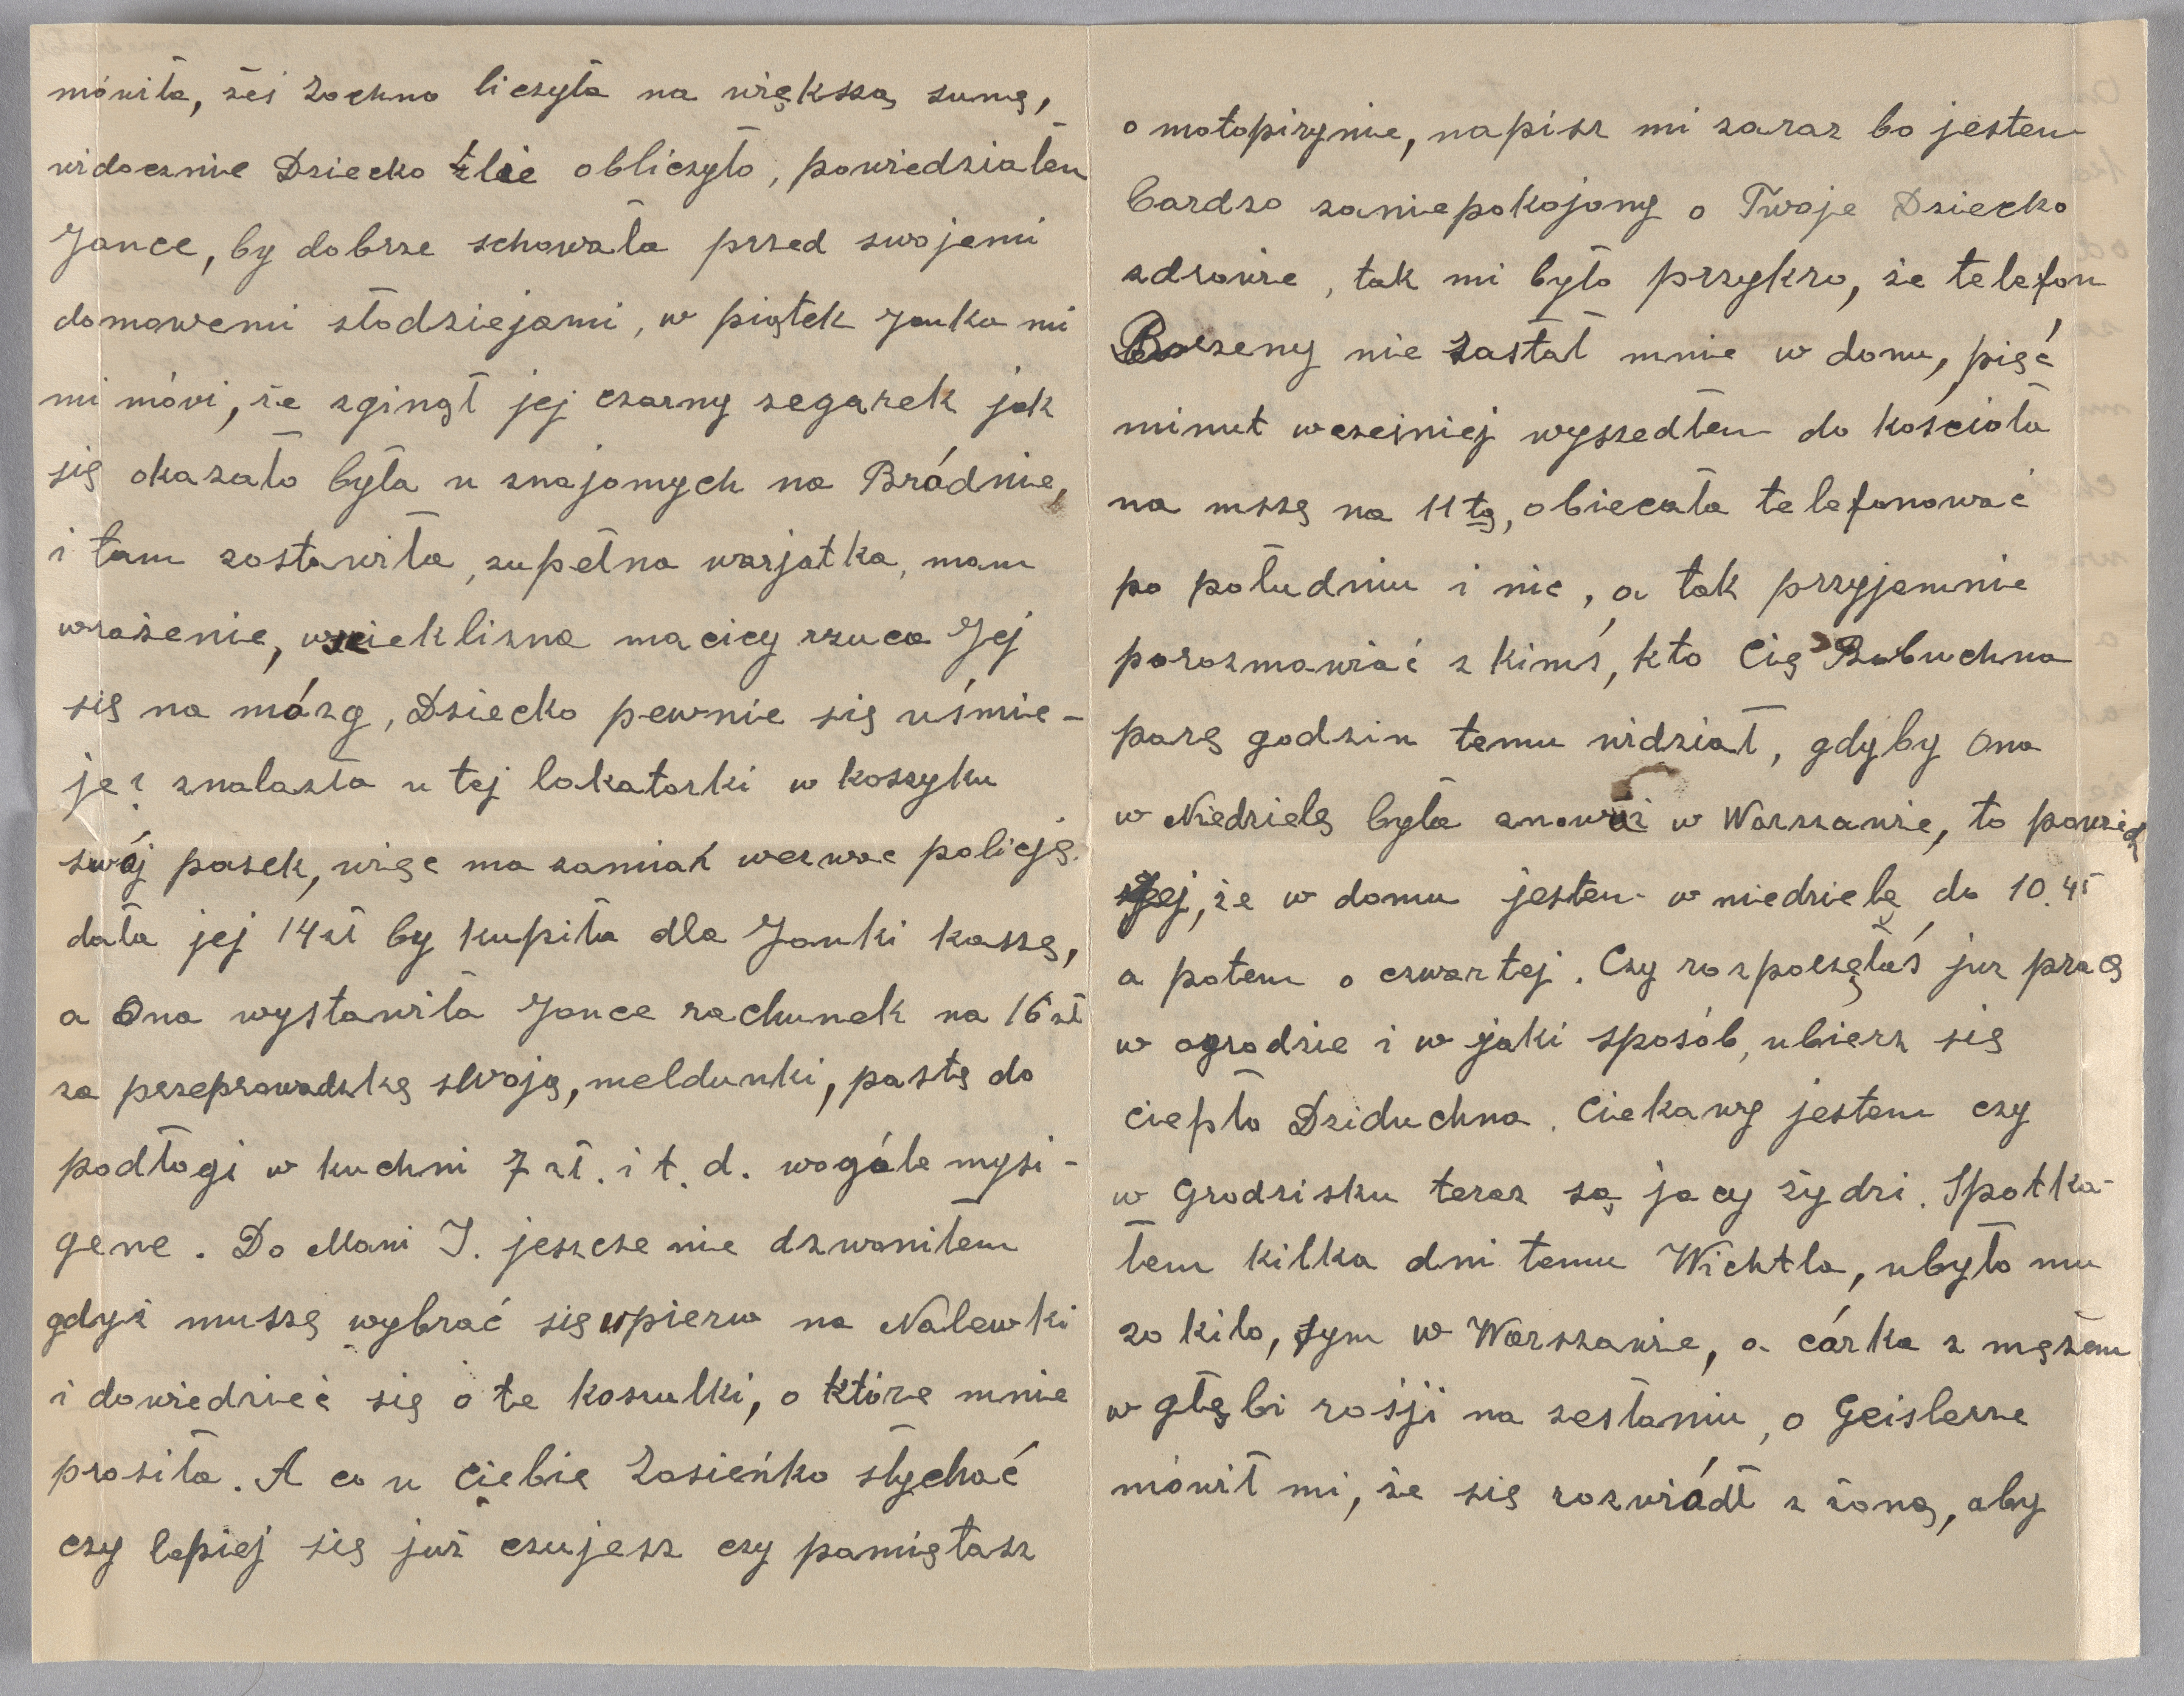 mówiła, żeś Zochno liczyła na większą sumę,
widocznie Dziecko źle obliczyło, powiedziałem
Jance, by dobrze schowała przed swojemi
domowemi złodziejami, w piątek Janka mi
mi mówi, że zginął jej czarny zegarek jak
się okazało była u znajomych na Bródnie,
i tam zostawiła, zupełna warjatka, mam
wrażenie, wścieklizna macicy rzuca Jej
się na mózg, Dziecko pewnie się uśmie-
je? znalazła u tej lokatorki w koszyku
swój pasek, więc ma zamiar wezwać policję.
dała jej 14 zł by kupiła dla Janki kaszę,
a Ona wystawiła Jance rachunek na 16 zł
za przeprowadzkę swoją, meldunki, pastę do
podłogi w kuchni 7 zł. i t. d. wogóle mysi-
gene. Do Mani J. jeszcze nie dzwoniłem
gdyż muszę wybrać się wpierw na Nalewki
i dowiedzieć się o te koszulki, o które mnie
prosiła. A co u Ciebie Zosieńko słychać
czy lepiej się już czujesz czy pamiętasz
o motopirynie, napisz mi zaraz bo jestem
bardzo zaniepokojony o Twoje Dziecko
zdrowie, tak mi było przykro, że telefon
nie zastał mnie w domu, pięć
minut wcześniej wyszedłem do kościoła
na mszę na 11tą, obiecała telefonować
po południu i nic, a tak przyjemnie
porozmawiać z kimś, kto Cię Bubuchna
parę godzin temu widział, gdyby Ona
w Niedzielę była znowuż w Warszawie, to powiedz
Jej, że w domu jestem w niedzielę do 10.45
a potem o czwartej. Czy rozpoczęłaś już pracę
w ogrodzie i w jaki sposób, ubierz się
ciepło Dziduchna. Ciekawy jestem czy
w Grodzisku teraz są jacy żydzi. Spotka-
łem kilka dni temu Wichtla, ubyło mu
20 kilo, żym w Warszawie, a córka z mężem
w głębi rosji na zesłaniu, o Geislerze
mówił mi, że się rozwiódł z żoną, aby